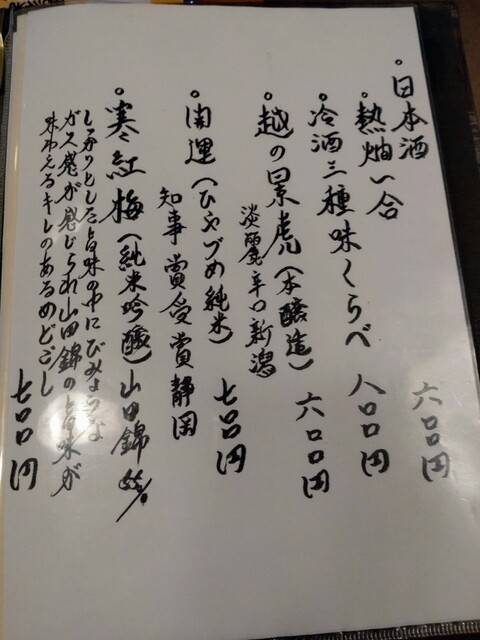 。日本酒
。熱燗一合 六〇〇円
。冷酒三種味くらべ 八〇〇円
。越の景虎(本醸造) 六〇〇円
淡麗辛口新潟
。開運(ひやづめ純米) 七〇〇円
知事賞受賞静岡
。寒紅梅(純米吟醸)山田錦
しっかりとした旨味の中にびみょうな
ガス感が感じられ山田錦の旨味が
味わえるキレのあるのどごし
七〇〇円